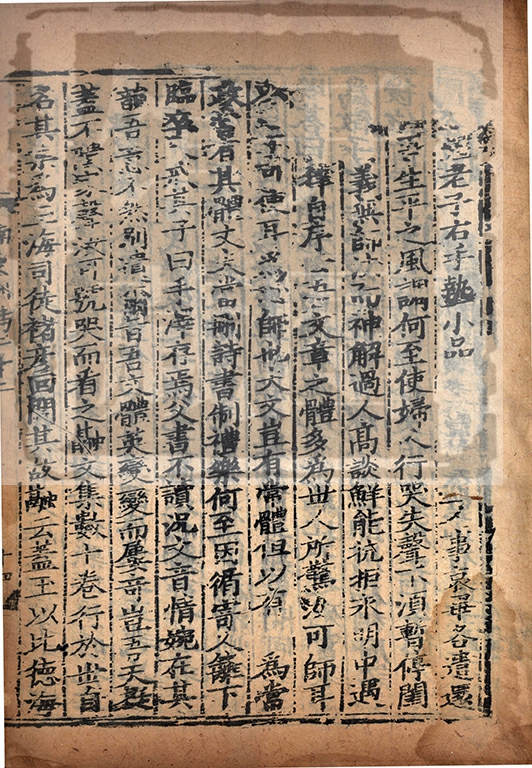 老子右手執小品人事哀畢各遣還
生平之風調何至使婦人行哭失聲不須暫停閨
義無師法而神解過人高談鮮能抗拒永明中遇
自序云吾文章之體多為世人所驚汝可師耳
使耳為心師也夫文豈有常體但以有為常
有其體丈夫當刪詩書制禮樂何至因循寄人籬下
臨卒又戒其子曰手澤存焉父書不讀況文音情婉在其
韻吾意不然別遺爾旨吾文體英變變而屢奇豈吾天挺
蓋不隤家聲汝可號哭而看之融文集數十卷行於世自
名其集為玉海司徒褚彥回問其故融云蓋玉以比德海